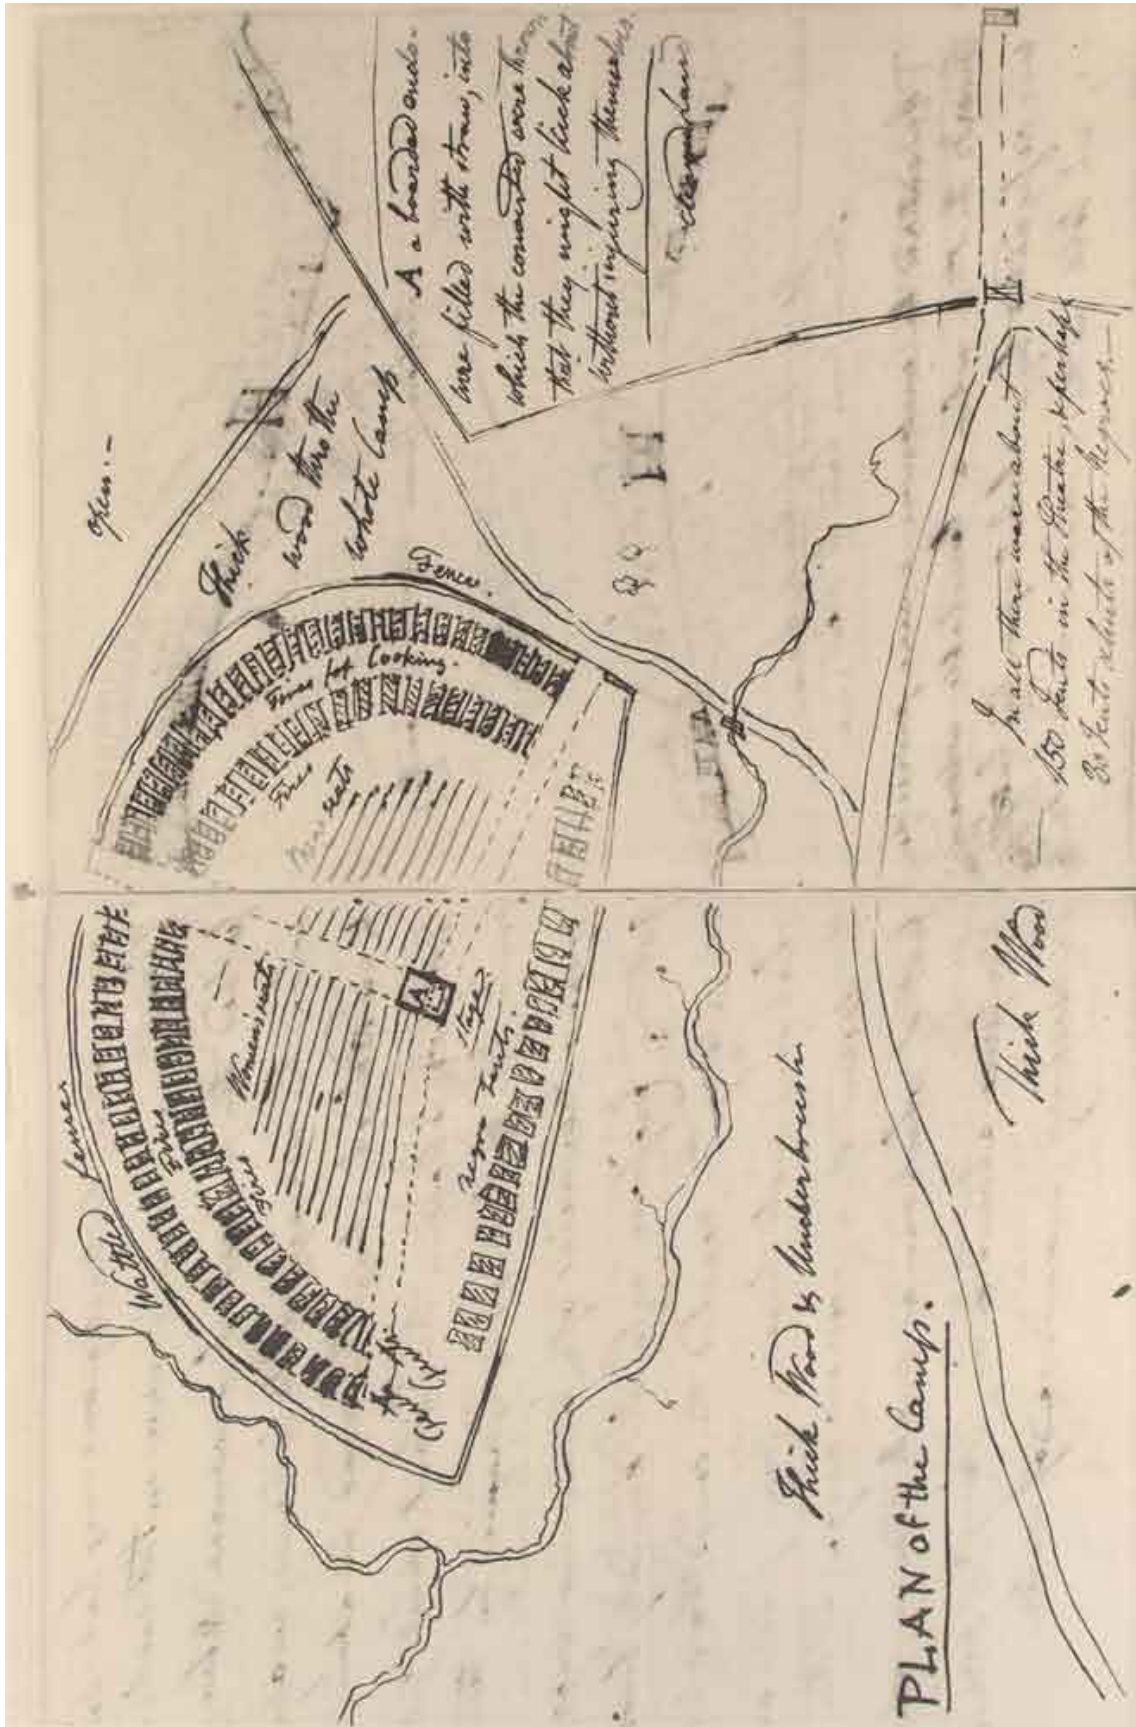 PLAN of the Camp.
Thick Wood & Underbrush
Thick Wood
Wattled
Fence.
Fires
Fires
Women's seats
Stage
A
Negro Tents.
Men's seats
Fires
Fires for Cooking.
Fence.
Open.—
Thick
wood thro the
whole Camp
A a boarded enclo-
sure filled with straw, into
which the converted were thrown
that they might kick about
without injuring themselves.
In all there were about
150 Tents in the theatre, & perhaps
30 Tents & huts of the Negroes.—